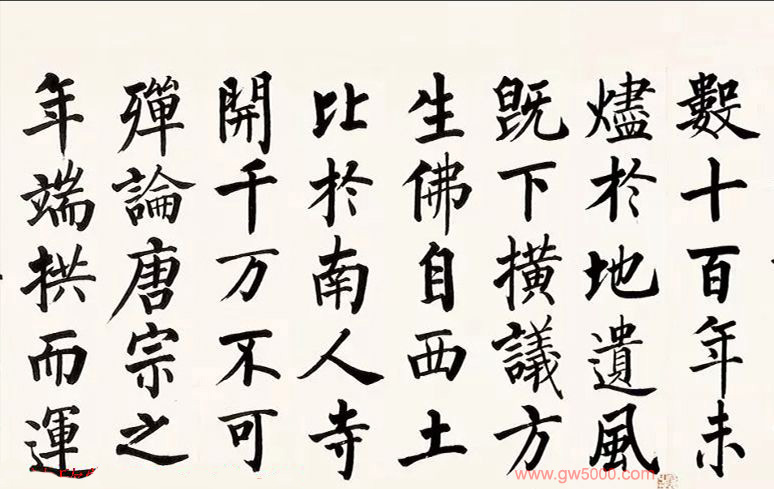 數十百年未
燼於地遺風
既下橫議方
生佛自西土
比於南人寺
開千万不可
殫論唐宗之
年端拱而運
www.gw5000.com